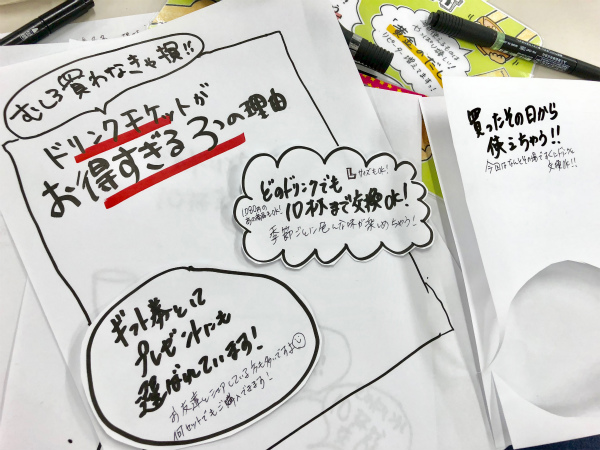 むしろ買わなきゃ損!!
ドリンクチケットが
お得すぎる3つの理由
どのドリンクでも
LサイズもOK!
10杯まで交換OK!
季節ごとにいろんな味が楽しめちゃう!
ギフト券として
プレゼントにも
選ばれています!
お友達とシェアしている方も多いですよ
何セットでもご購入できます!
買ったその日から
使えちゃう!!
今回はなんとその場ですぐドリンクに
交換OK!!